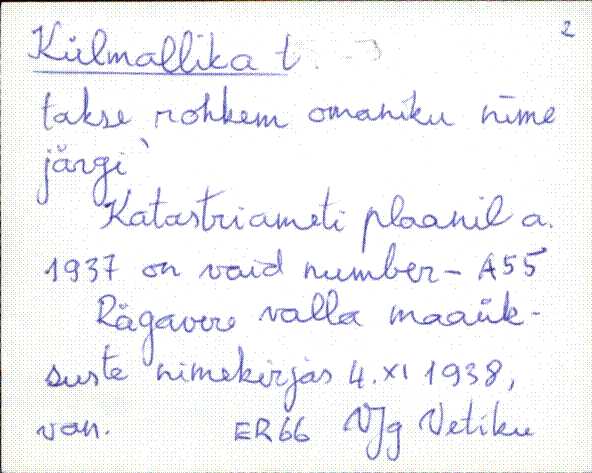 2
Külmallika t.
takse rohkem omaniku nime
järgi`
Katastriameti plaanil a.
1937 on vaid number - A55
Rägavere valla maaük-
suste nimekirjas 4. XI 1938,
van. ER66 VJg Vetiku